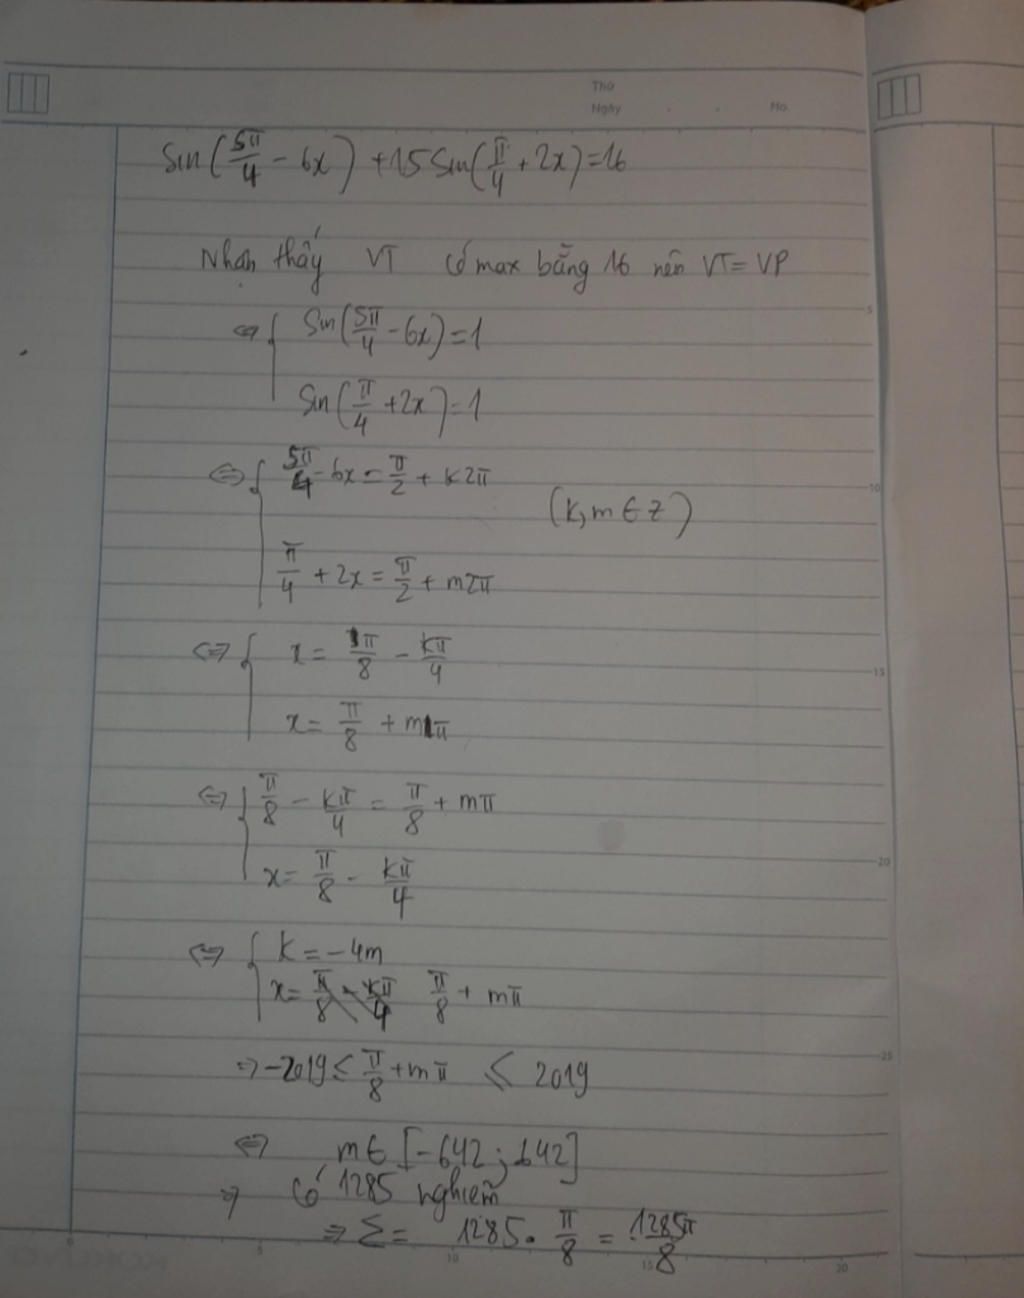 Thứ
Ngày . . No.
Sin(5π/4 - 6x) + 15 Sin(π/4 + 2x) = 16
Nhận thấy VT có max bằng 16 nên VT = VP
⇔ { Sin(5π/4 - 6x) = 1
Sin(π/4 + 2x) = 1
⇔ { 5π/4 - 6x = π/2 + k2π
(k, m ∈ Z)
π/4 + 2x = π/2 + m2π
⇔ { x = π/8 - kπ/4
x = π/8 + mπ
⇔ { π/8 - kπ/4 = π/8 + mπ
x = π/8 - kπ/4
⇔ { k = -4m
x = π/8 - kπ/4 π/8 + mπ
⇒ -2019 ≤ π/8 + mπ ≤ 2019
⇔ m ∈ [-642; 642]
⇒ Có 1285 nghiệm
⇒ Σ = 1285 . π/8 = 1285π/8
5
10
15
20
25
0 5 10 15 20